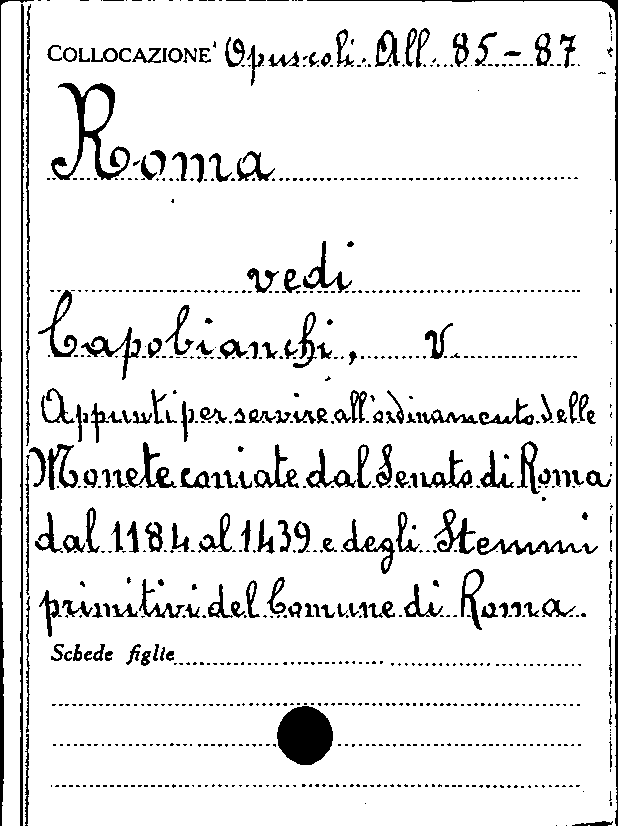 COLLOCAZIONE Opuscoli. All. 85-87
Roma
vedi
Capobianchi, V.
Appunti per servire all'ordinamento delle
Monete coniate dal Senato di Roma
dal 1184 al 1439 e degli Stemmi
primitivi del Comune di Roma.
Schede figlie